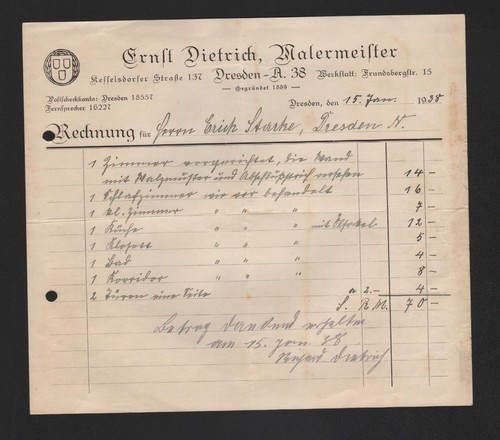 Ernst Dietrich, Malermeister
Kesselsdorfer Straße 137 Dresden-A. 38 Werkstatt: Frundsbergstr. 15
Gegründet 1886
Postscheckkonto: Dresden 18557
Fernsprecher 16227
Dresden, den 15. Jan. 1938
Rechnung für Herrn Erich Starke, Dresden N.
1 Zimmer vorgerichtet, die Wand
mit Walzmuster und Abschlußstrich versehen 14 –
1 Schlafzimmer wie vor behandelt 16 –
1 kl. Zimmer " " " 7 –
1 Küche " " " mit Sockel 12 –
1 Klosett " " " 5 –
1 Bad " " " 4 –
1 Korridor " " " 8 –
2 Türen eine Seite a 2.– 4 –
S. R.M. 70 –
Betrag dankend erhalten
am 15. Jan 38
Dietrich